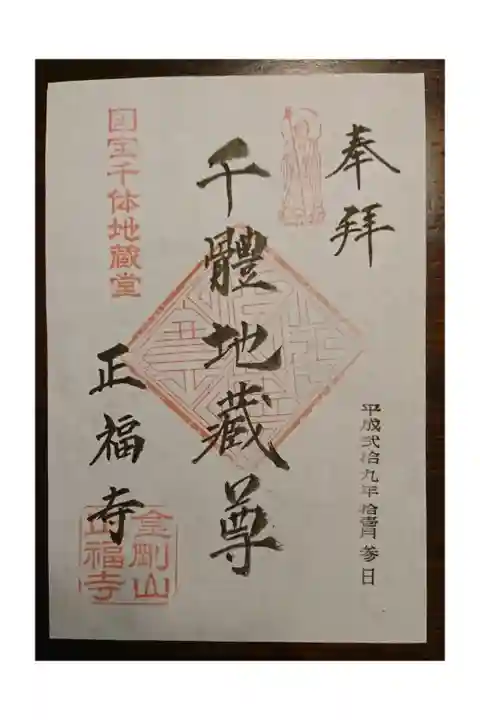 奉拝
平成弐拾九年拾壱月参日
千體地蔵尊
国宝千体地蔵堂
正福寺
金剛山
正福寺